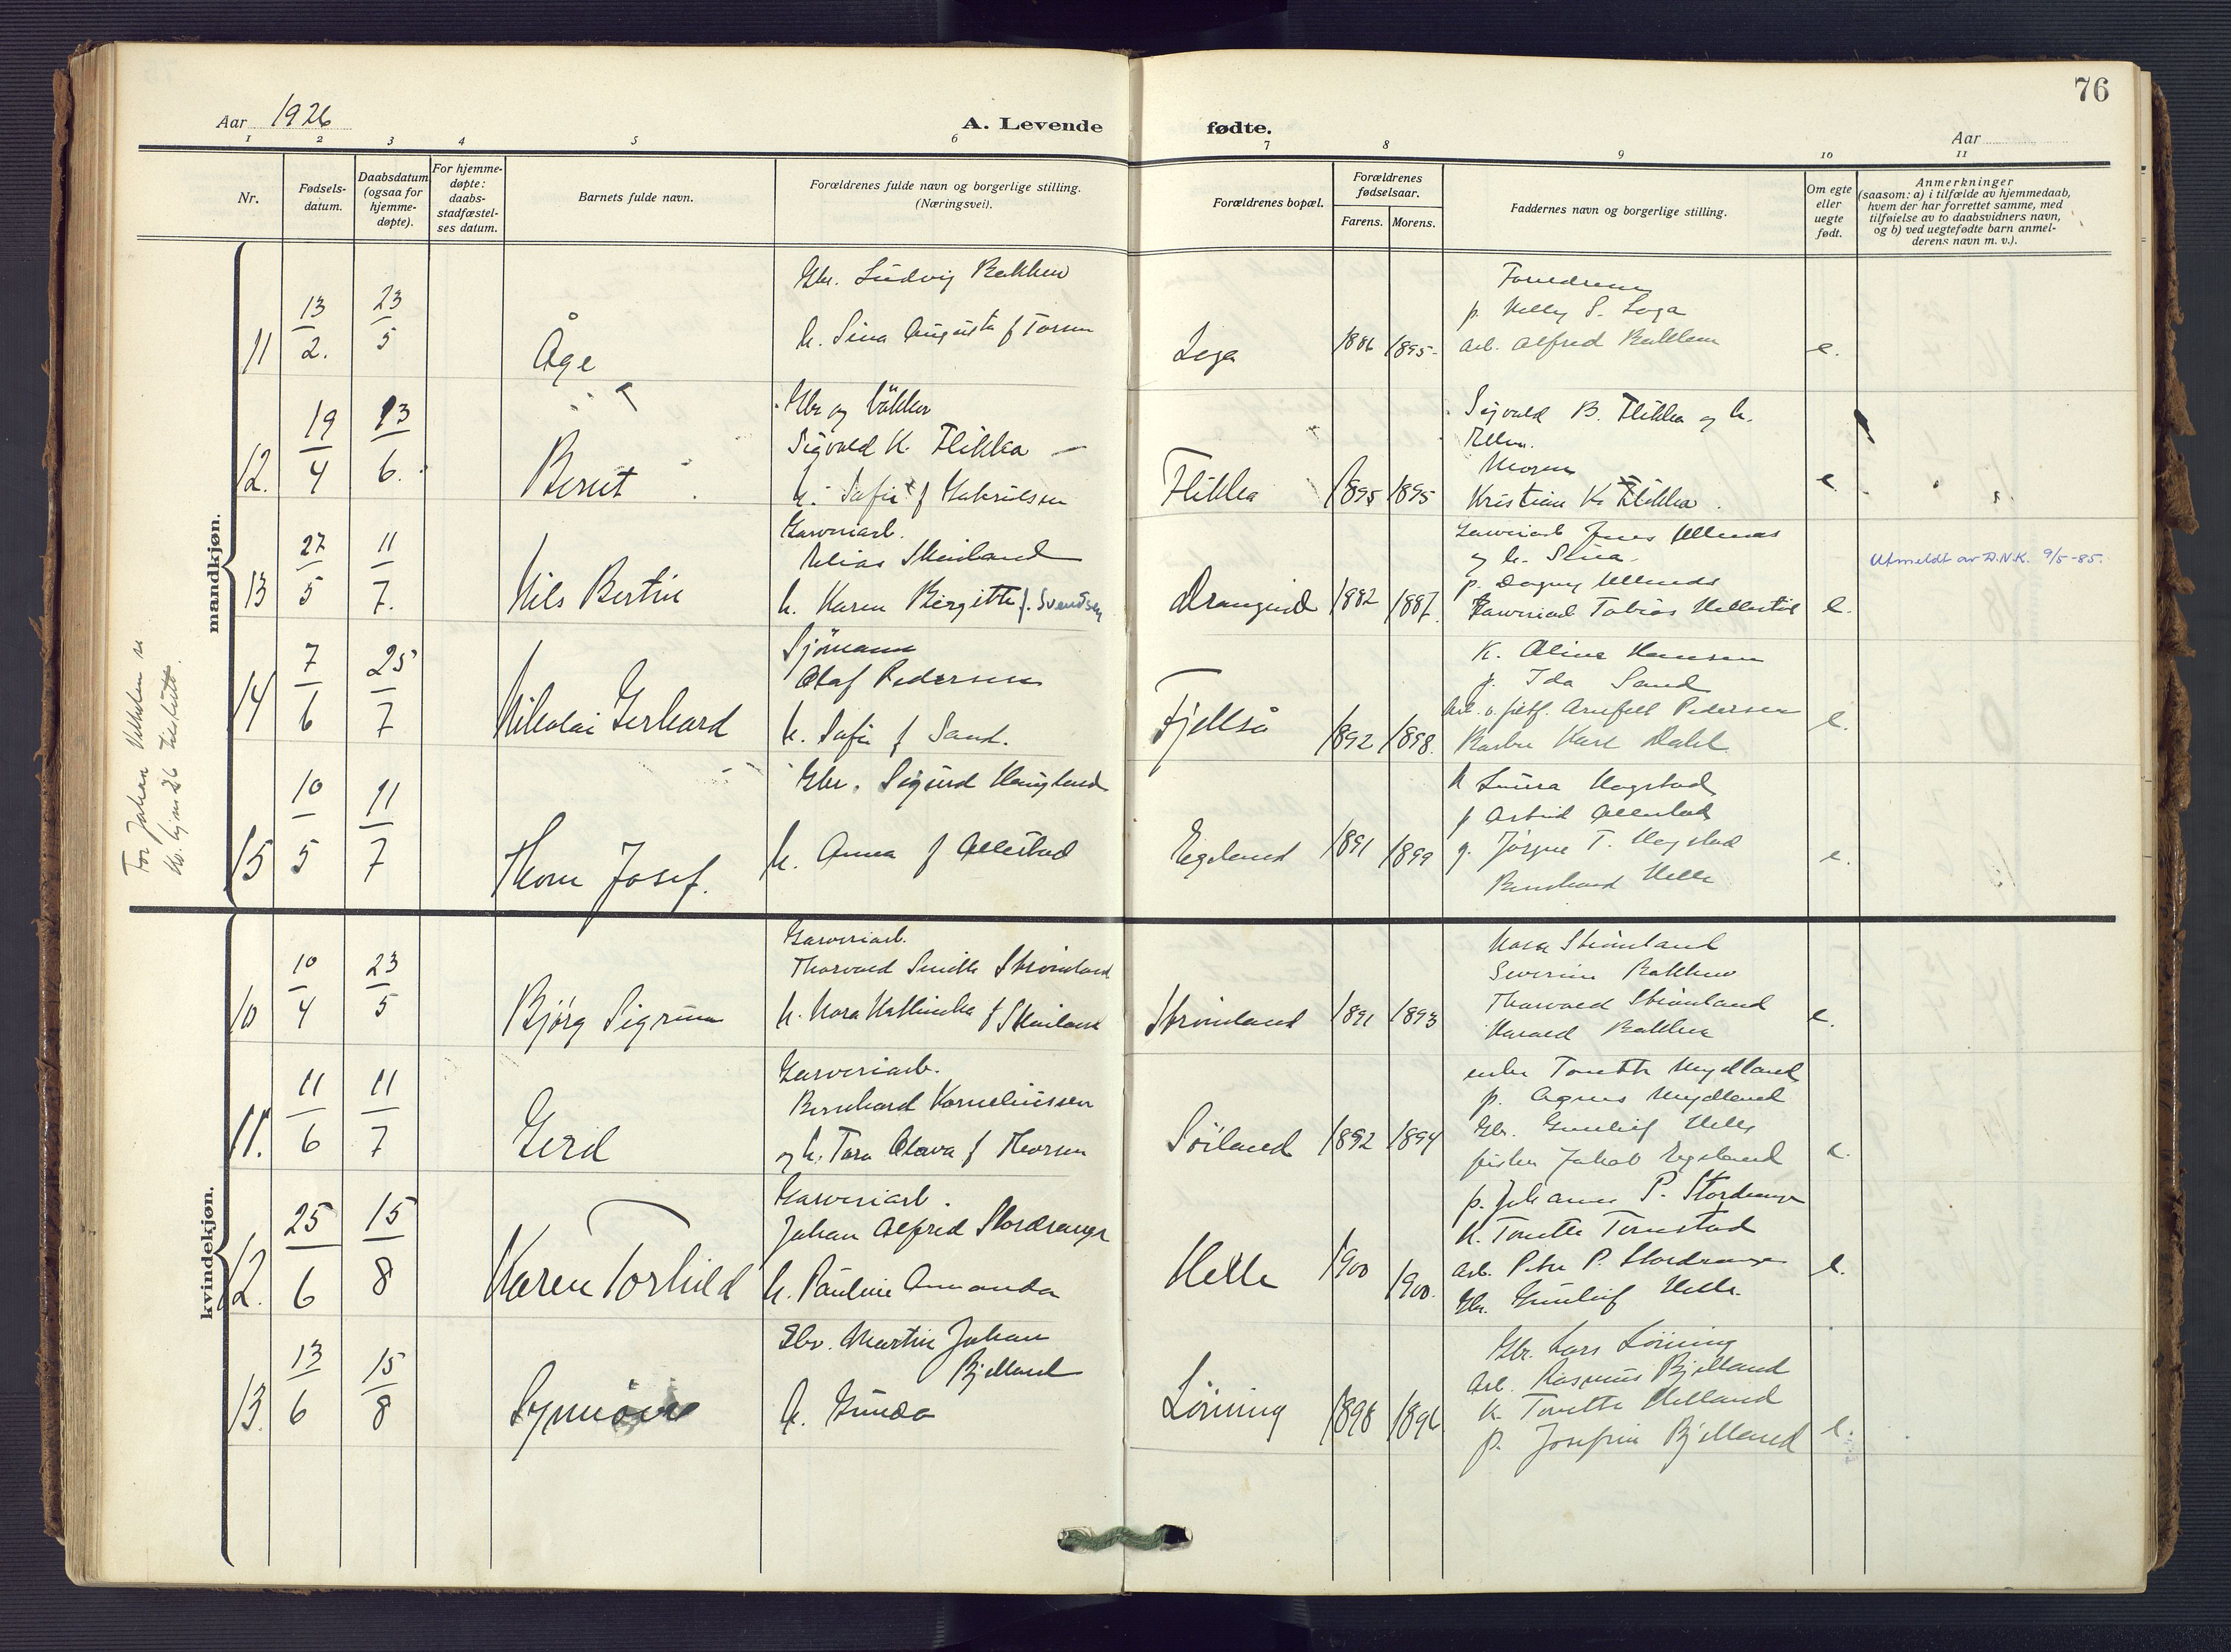 76
Aar 1926
A. Levende
fødte.
Aar
1 2 3 4 5 6 7 8 9 10 11
Nr.
Fødsels-
datum.
Daabsdatum
(ogsaa for
hjemme-
døpte).
For hjemme-
døpte:
daabs-
stadfæstel-
ses datum.
Barnets fulde navn.
Forældrenes fulde navn og borgerlige stilling.
(Næringsvei).
Forældrenes bopæl.
Forældrenes
fødselsaar.
Farens. Morens.
Faddernes navn og borgerlige stilling.
Om egte
eller
uegte
født.
Anmerkninger
(saasom: a) i tilfælde av hjemmedaab,
hvem der har forrettet samme, med
tilføielse av to daabsvidners navn,
og b) ved uegtefødte barn anmel-
derens navn m. v.).
mandkjøn.
11
13
2.
23
5
Åge
Gbr. Ludvig Bakken
h. Sina Augusta f Torsen
Loga
1886 1895.
Forældrene
p. Nelly S. Loga
arb. Alfred Bakken
e.
12.
19
4
13
6.
Berit
Gbr og
Sigvald K. Flikka
h. Sofie f Gabrielsen
Flikka
1895 1895
Sigvald B. Flikka og h.
Ellen.
Moren
Kristian K. Flikka.
e
13
27
5
11
7.
Nils Bertin
Garveriarb.
Elias Skailand
h. Karen Birgitte f. Svendsen
Drangeid
1882 1887.
Garveriarb Jens
og h. Sina.
p. Dagny
Garveriarb Tobias
e.
Utmeldt av D.N.K. 9/5-85.
14
7
6
25
7
Nikolai Gerhard
Sjømann
Olaf Pedersen
h. Sofie f Sand.
Fjellså
1892 1898.
K. Aline Hansen
p. Ida Sand
Arnfelt Pedersen
Barber Karl Dahl
e.
15
10
5
11
7
Thom Josef.
Gbr. Sigurd Haugland
h. Anna f Ollestad
Egeland
1891 1899
h Laura Hogstad
p Astrid Ollestad
g. Jørgen T. Hogstad
Bernhard Helle
e.
For Johan
kvindekjøn.
10
10
4
23
5
Bjørg Sigrun
Garveriarb.
Thorvald Smith Strømland
h. Nora Kathinka f Skailand
Strømland
1891 1893
Nora Strømland
Severine Bakken
Thorvald Strømland
Harald Bakken
e.
11.
11
6
11
7
Gerd
Garveriarb.
Bernhard Korneliussen
og h. Tara Olava f Thorsen
Søiland
1892 1894
enke Tonette Mydland
p. Agnes Mydland
Gbr. Gunleif Helle
fisker Jakob Egeland
e.
12.
25
6
15
8
Karen Torhild
Garveriarb.
Johan Alfred Stordrange
h. Pauline Amanda
Helle
1900 1900.
p. Johanne P. Stordrange
h. Tonette Tonstad
arb. Peter P. Stordrange
Gbr. Gunleif Helle.
e.
13.
13
6
15
8
Synnøve
Gbr. Martin Johan
Bjelland
h. Gunda
Lønning
1898 1896
Gbr. Lars Lønning
Arb. Rasmus Bjelland
k. Tonette Helland
p. Josefine Bjelland
e.